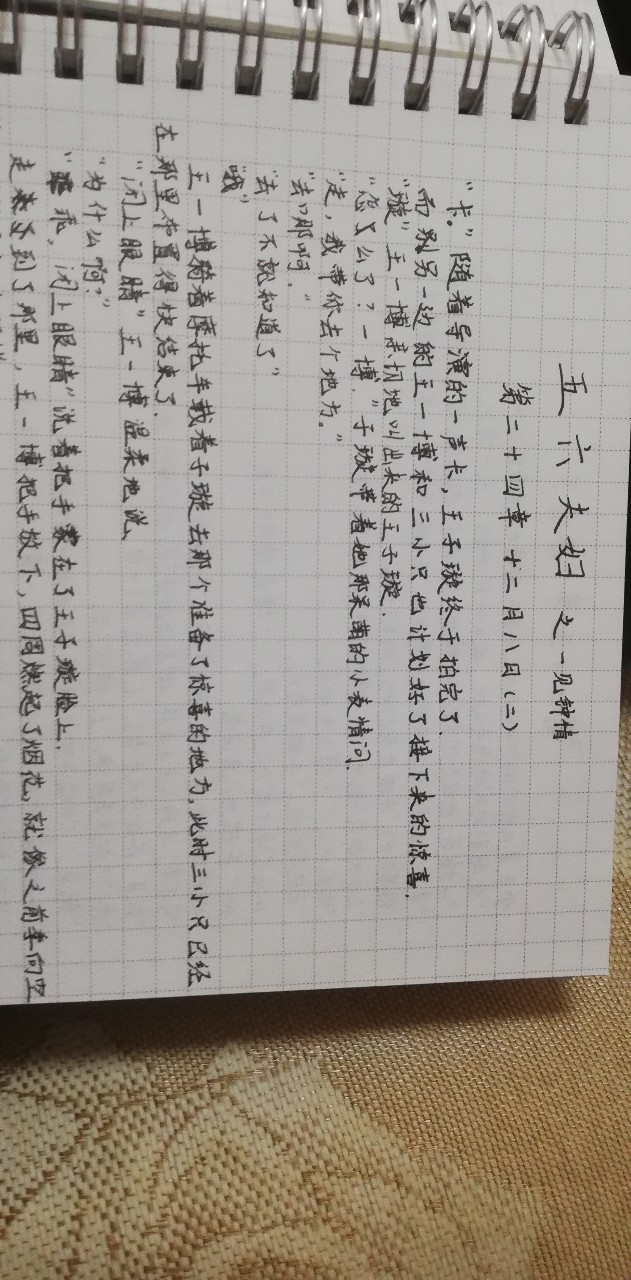 五六夫妇之一见钟情
第二十四章 十二月八日(二)
“卡。”随着导演的一声卡,王子璇终于拍完了.
而别另一边的王一博和三小只也计划好了接下来的惊喜.
“璇”王一博亲切地叫出来的王子璇.
“怎么了?一博.”子璇带着她那呆萌的小表情问.
“走,我带你去个地方。”
“去哪啊.”
“去了不就知道了”
“哦”
王一博骑着摩托车载着子璇去那个准备了惊喜的地方,此时三小只已经
在那里布置得快结束了.
“闭上眼睛”王一博温柔地说、
“为什么啊?”
“乖,闭上眼睛”说着把手蒙在了王子璇脸上.
走着到了那里,王一博把手放下,四周燃起了烟花,就像之前李向空